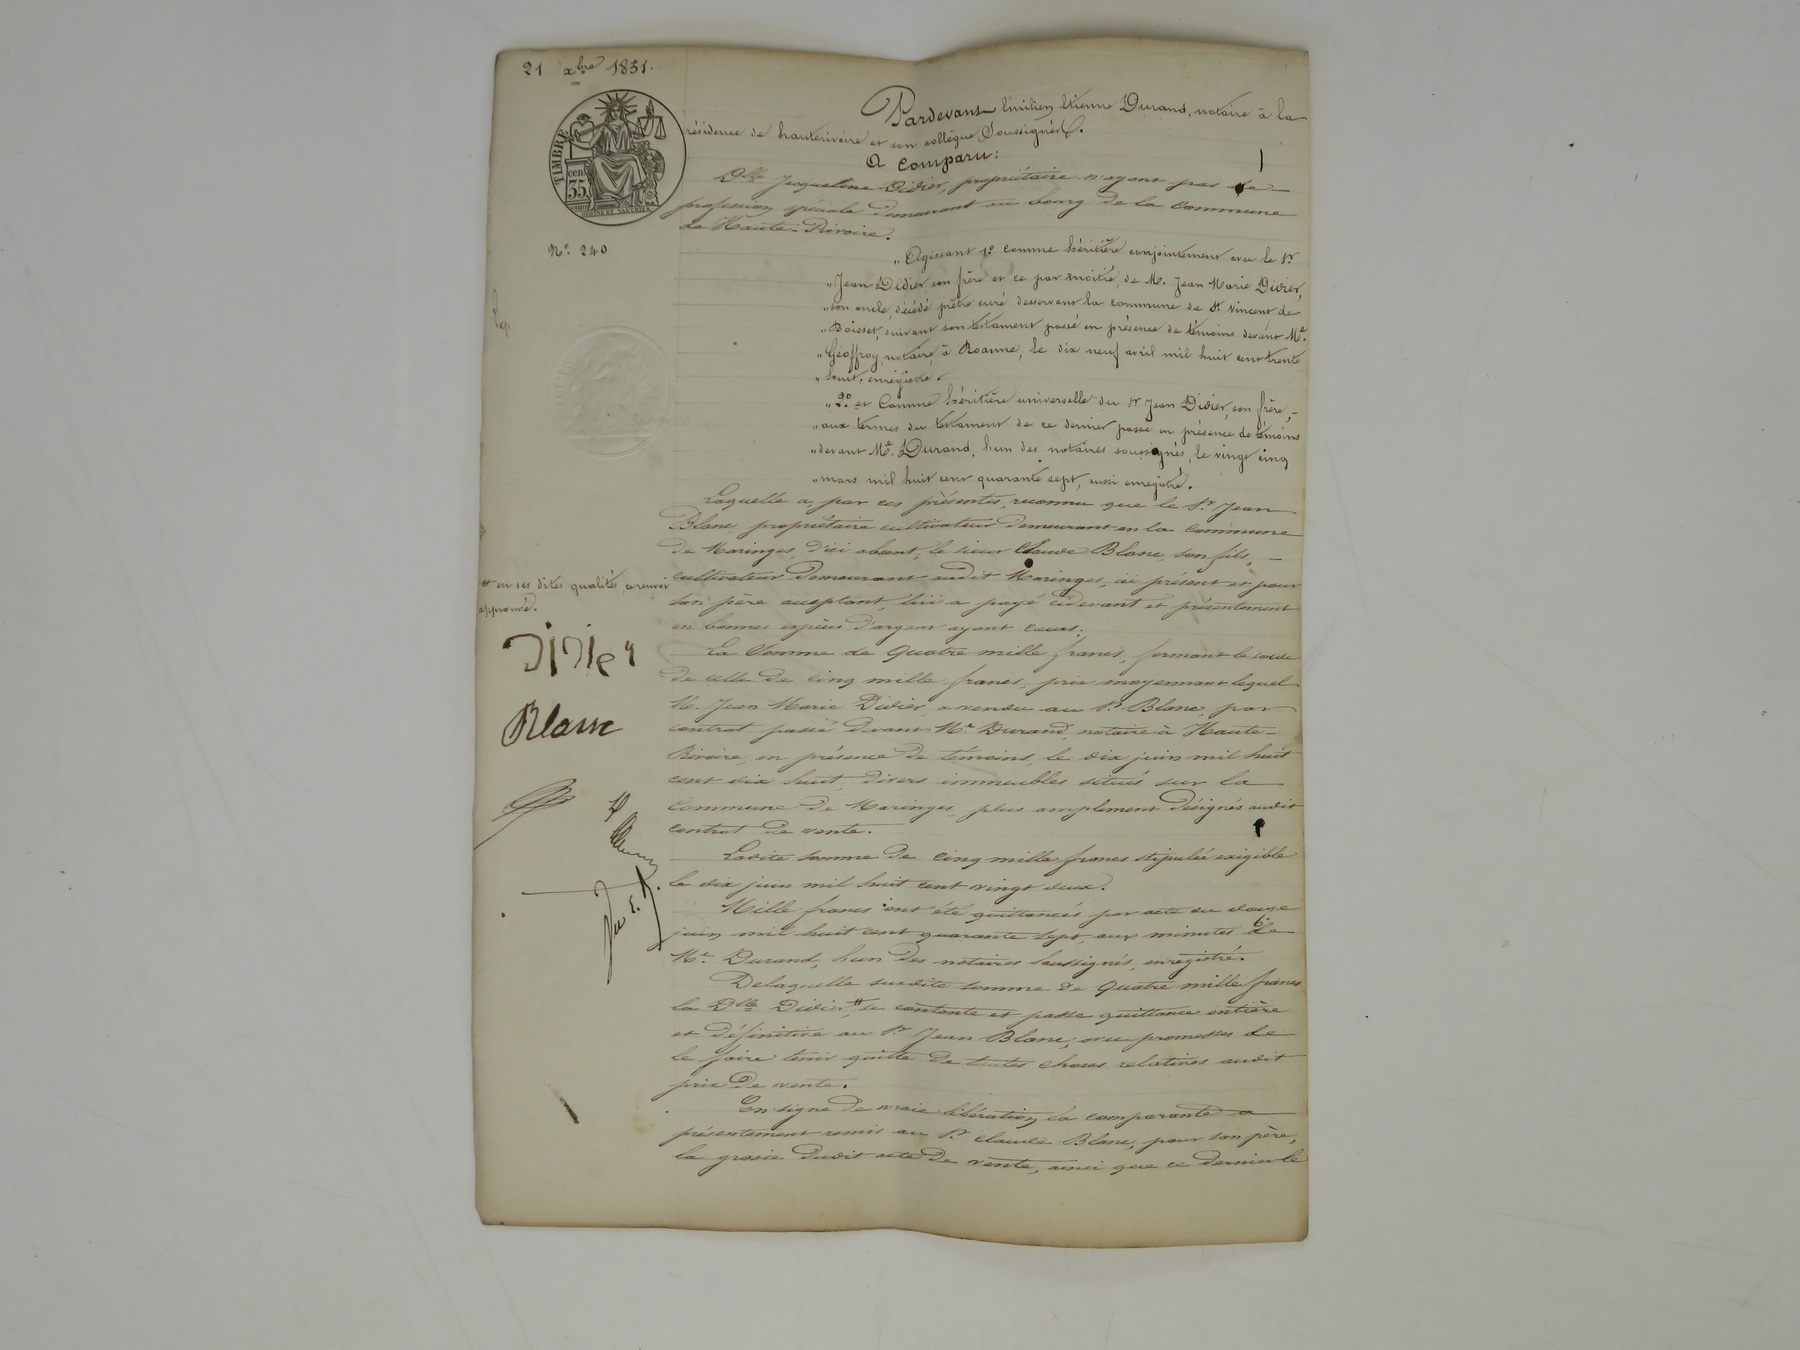 21 xbre 1851.
TIMBRE
cen.
35
N° 240
Pardevant Emilien Etienne Durand, notaire à la
résidence de hauterivoire et son collègue Soussignés.
A comparu:
Dlle Jacqueline Didier, propriétaire n'ayant pas de
profession spéciale demeurant au bourg de la commune
de Haute-Rivoire.
„ Agissant 1° comme héritière conjointement avec le Sr
„ Jean Didier, son frère et ce par moitié, de M. Jean Marie Didier,
„ son oncle, décédé prêtre curé desservant la commune de St. Vincent de
„ Boisset, suivant son testament passé en présence de témoins devant Me
„ Géoffroy, notaire à Roanne, le dix neuf avril mil huit cent trente
„ huit, enrégistré.
„ 2° et Comme héritière universelle du Sr Jean Didier, son frère,
„ aux termes du testament de ce dernier passé en présence de témoins
„ devant Me Durand, l'un des notaires soussignés, le vingt cinq
„ mars mil huit cent quarante sept, aussi enregistré.
Laquelle a, par ces présentes, reconnu que le Sr Jean
Blanc, propriétaire cultivateur demeurant en la commune
de Maringes, d'ici absent, le sieur Claude Blanc, son fils,
cultivateur demeurant audit Maringes, ici présent et pour
son père acceptant, lui a payé cidevant et présentement
en bonnes espèces d'argent ayant cours:
La Somme de Quatre mille francs, formant le solde
de celle de Cinq mille francs, prix moyennant lequel
M. Jean Marie Didier, a vendu au Sr Blanc, par
contrat passé devant Me Durand, notaire à Haute-
Rivoire, en présence de témoins, le dix juin mil huit
cent dix huit, divers immeubles situés sur la
Commune de Maringes, plus amplement désignés audit
contrat de vente.
Ladite somme de Cinq mille francs stipulée exigible
le dix juin mil huit cent vingt deux.
Mille francs ont été quittancés par acte du douze
juin mil huit cent quarante sept, aux minutes de
Me Durand, l'un des notaires Soussignés, enregistré.
Delaquelle susdite somme de Quatre mille francs
la Dlle Didier # se contente et passe quittance entière
et définitive au Sr Jean Blanc, avec promesses de
le faire tenir quitte de toutes choses relatives audit
prix de vente.
En signe de vraie libération, la comparante a
présentement remis au Sr Claude Blanc, pour son père,
la grosse dudit acte de vente, ainsi que ce dernier le
# en ses dites qualités, ce renvoi
approuvé.
Didier
Blanc